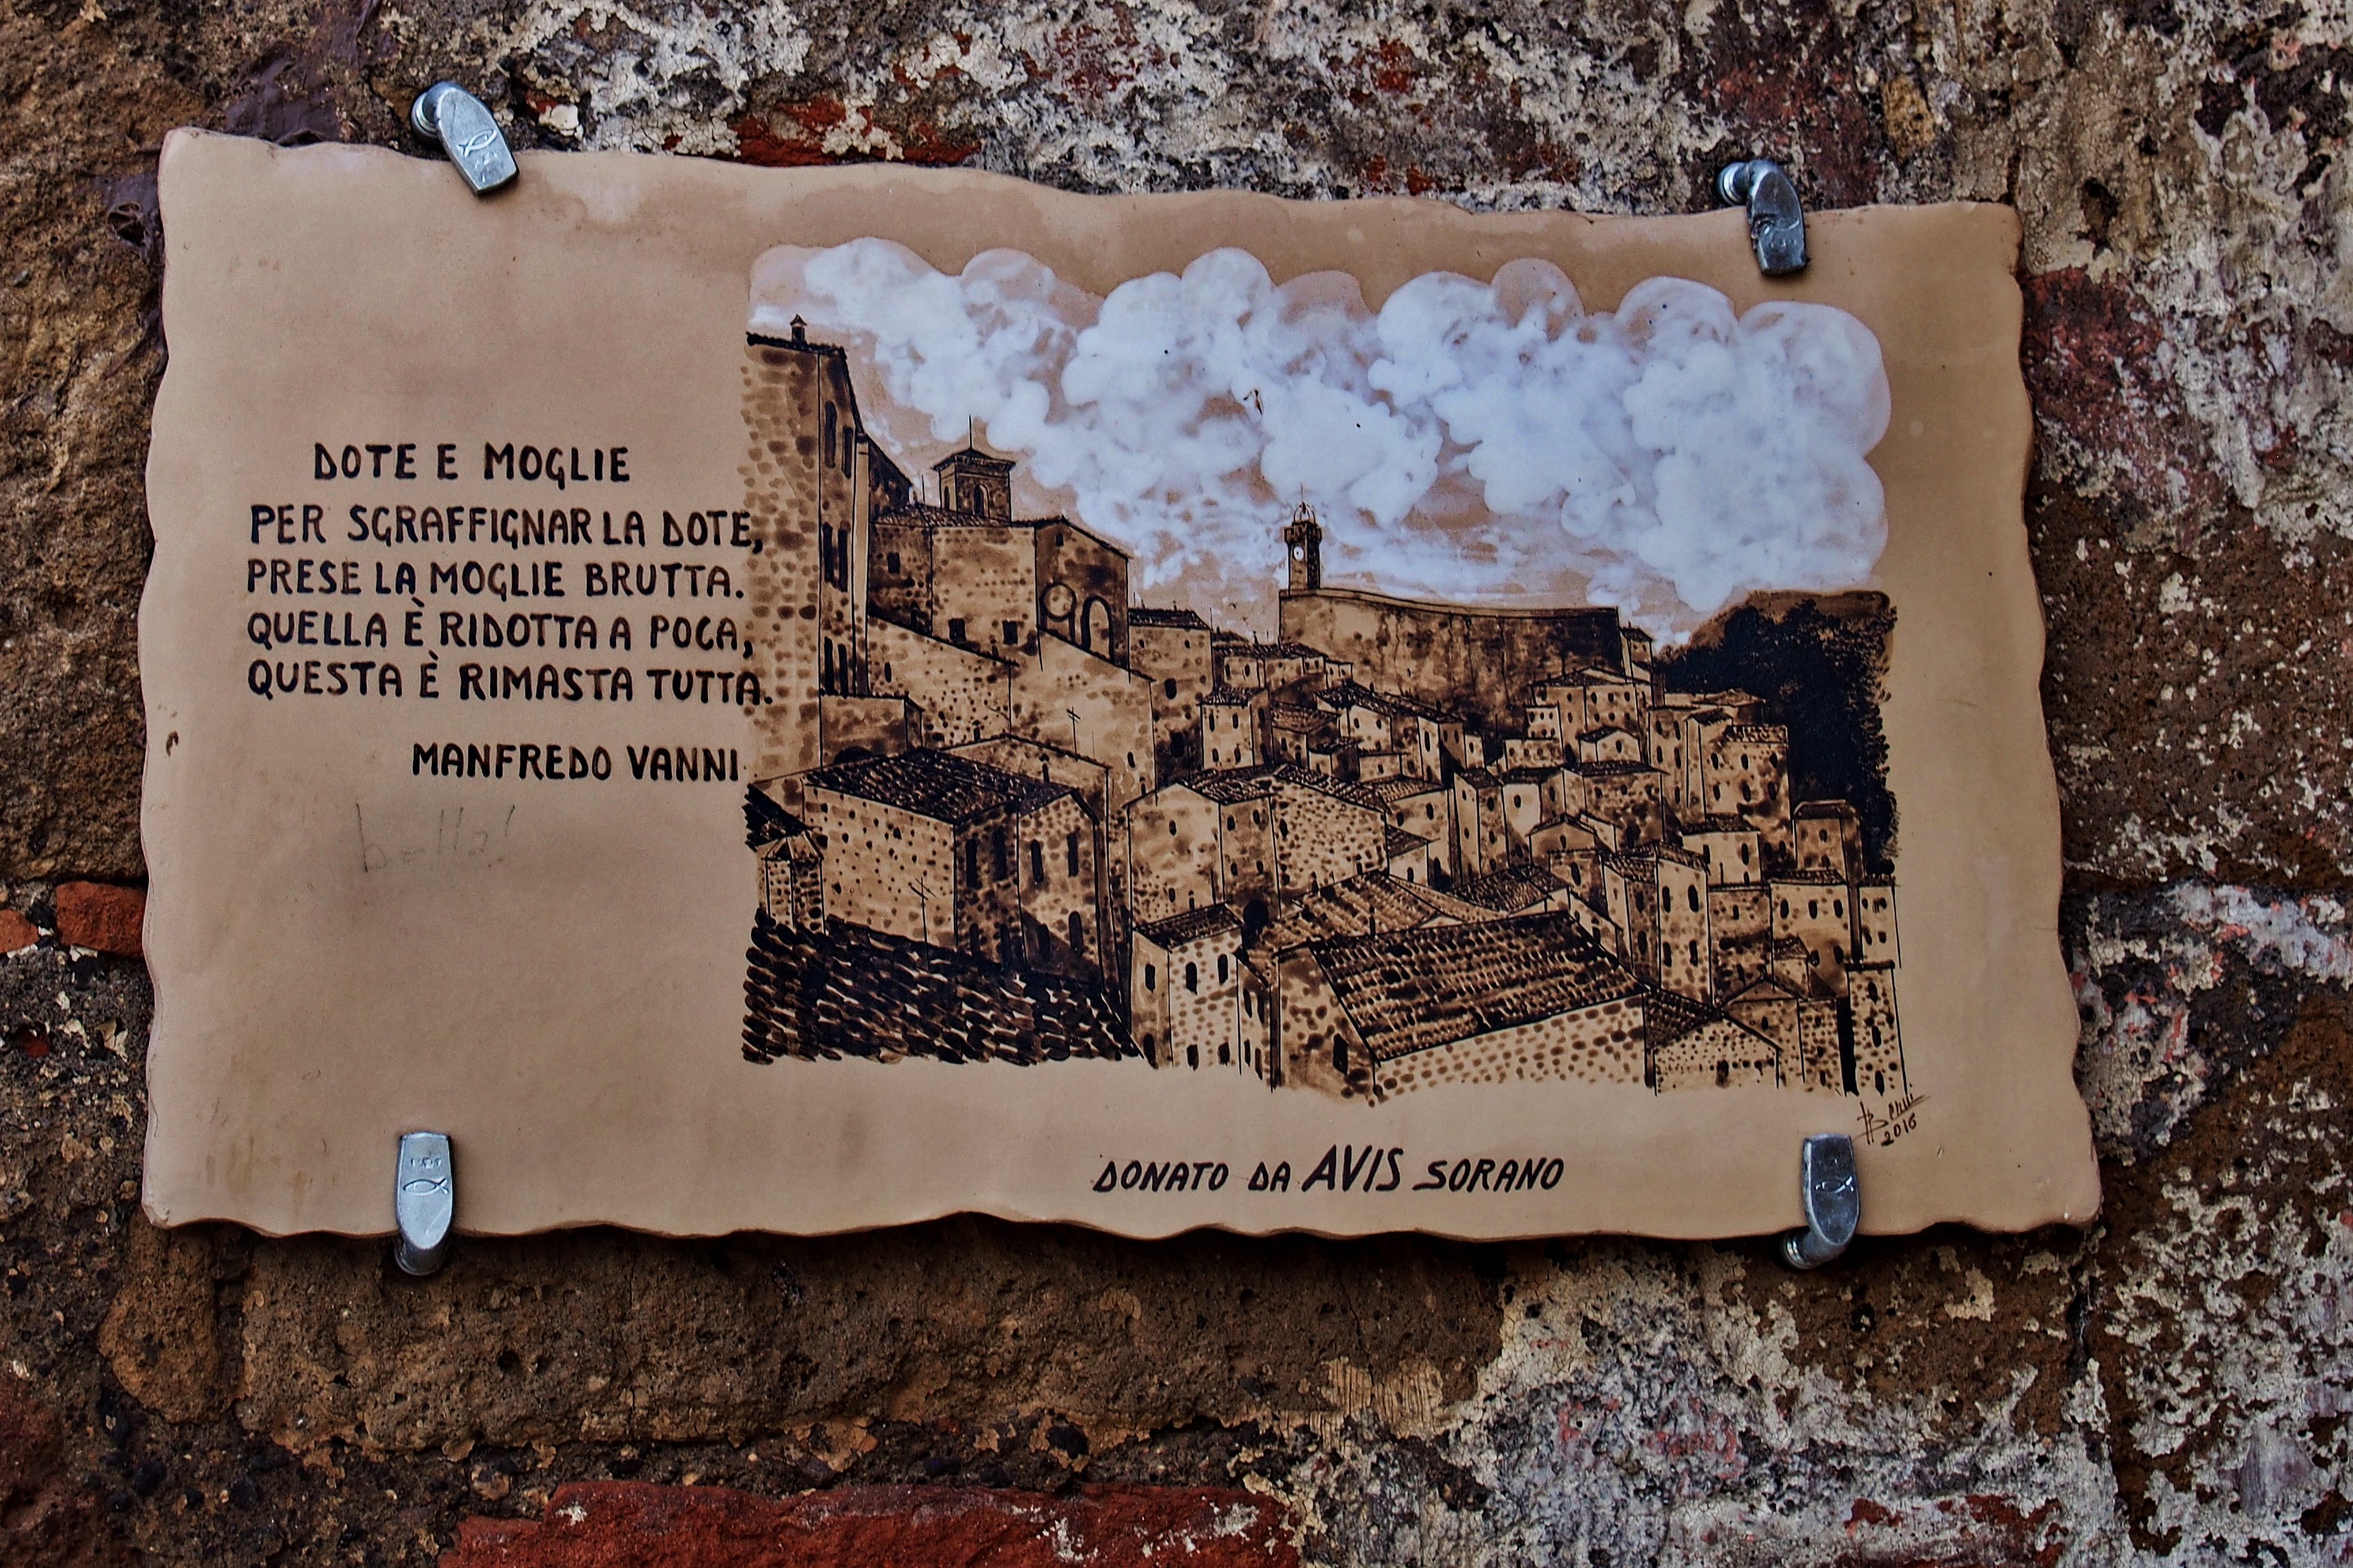 DOTE E MOGLIE
PER SGRAFFIGNAR LA DOTE,
PRESE LA MOGLIE BRUTTA.
QUELLA È RIDOTTA A POCA,
QUESTA È RIMASTA TUTTA.
MANFREDO VANNI
bella!
2016
DONATO DA AVIS SORANO